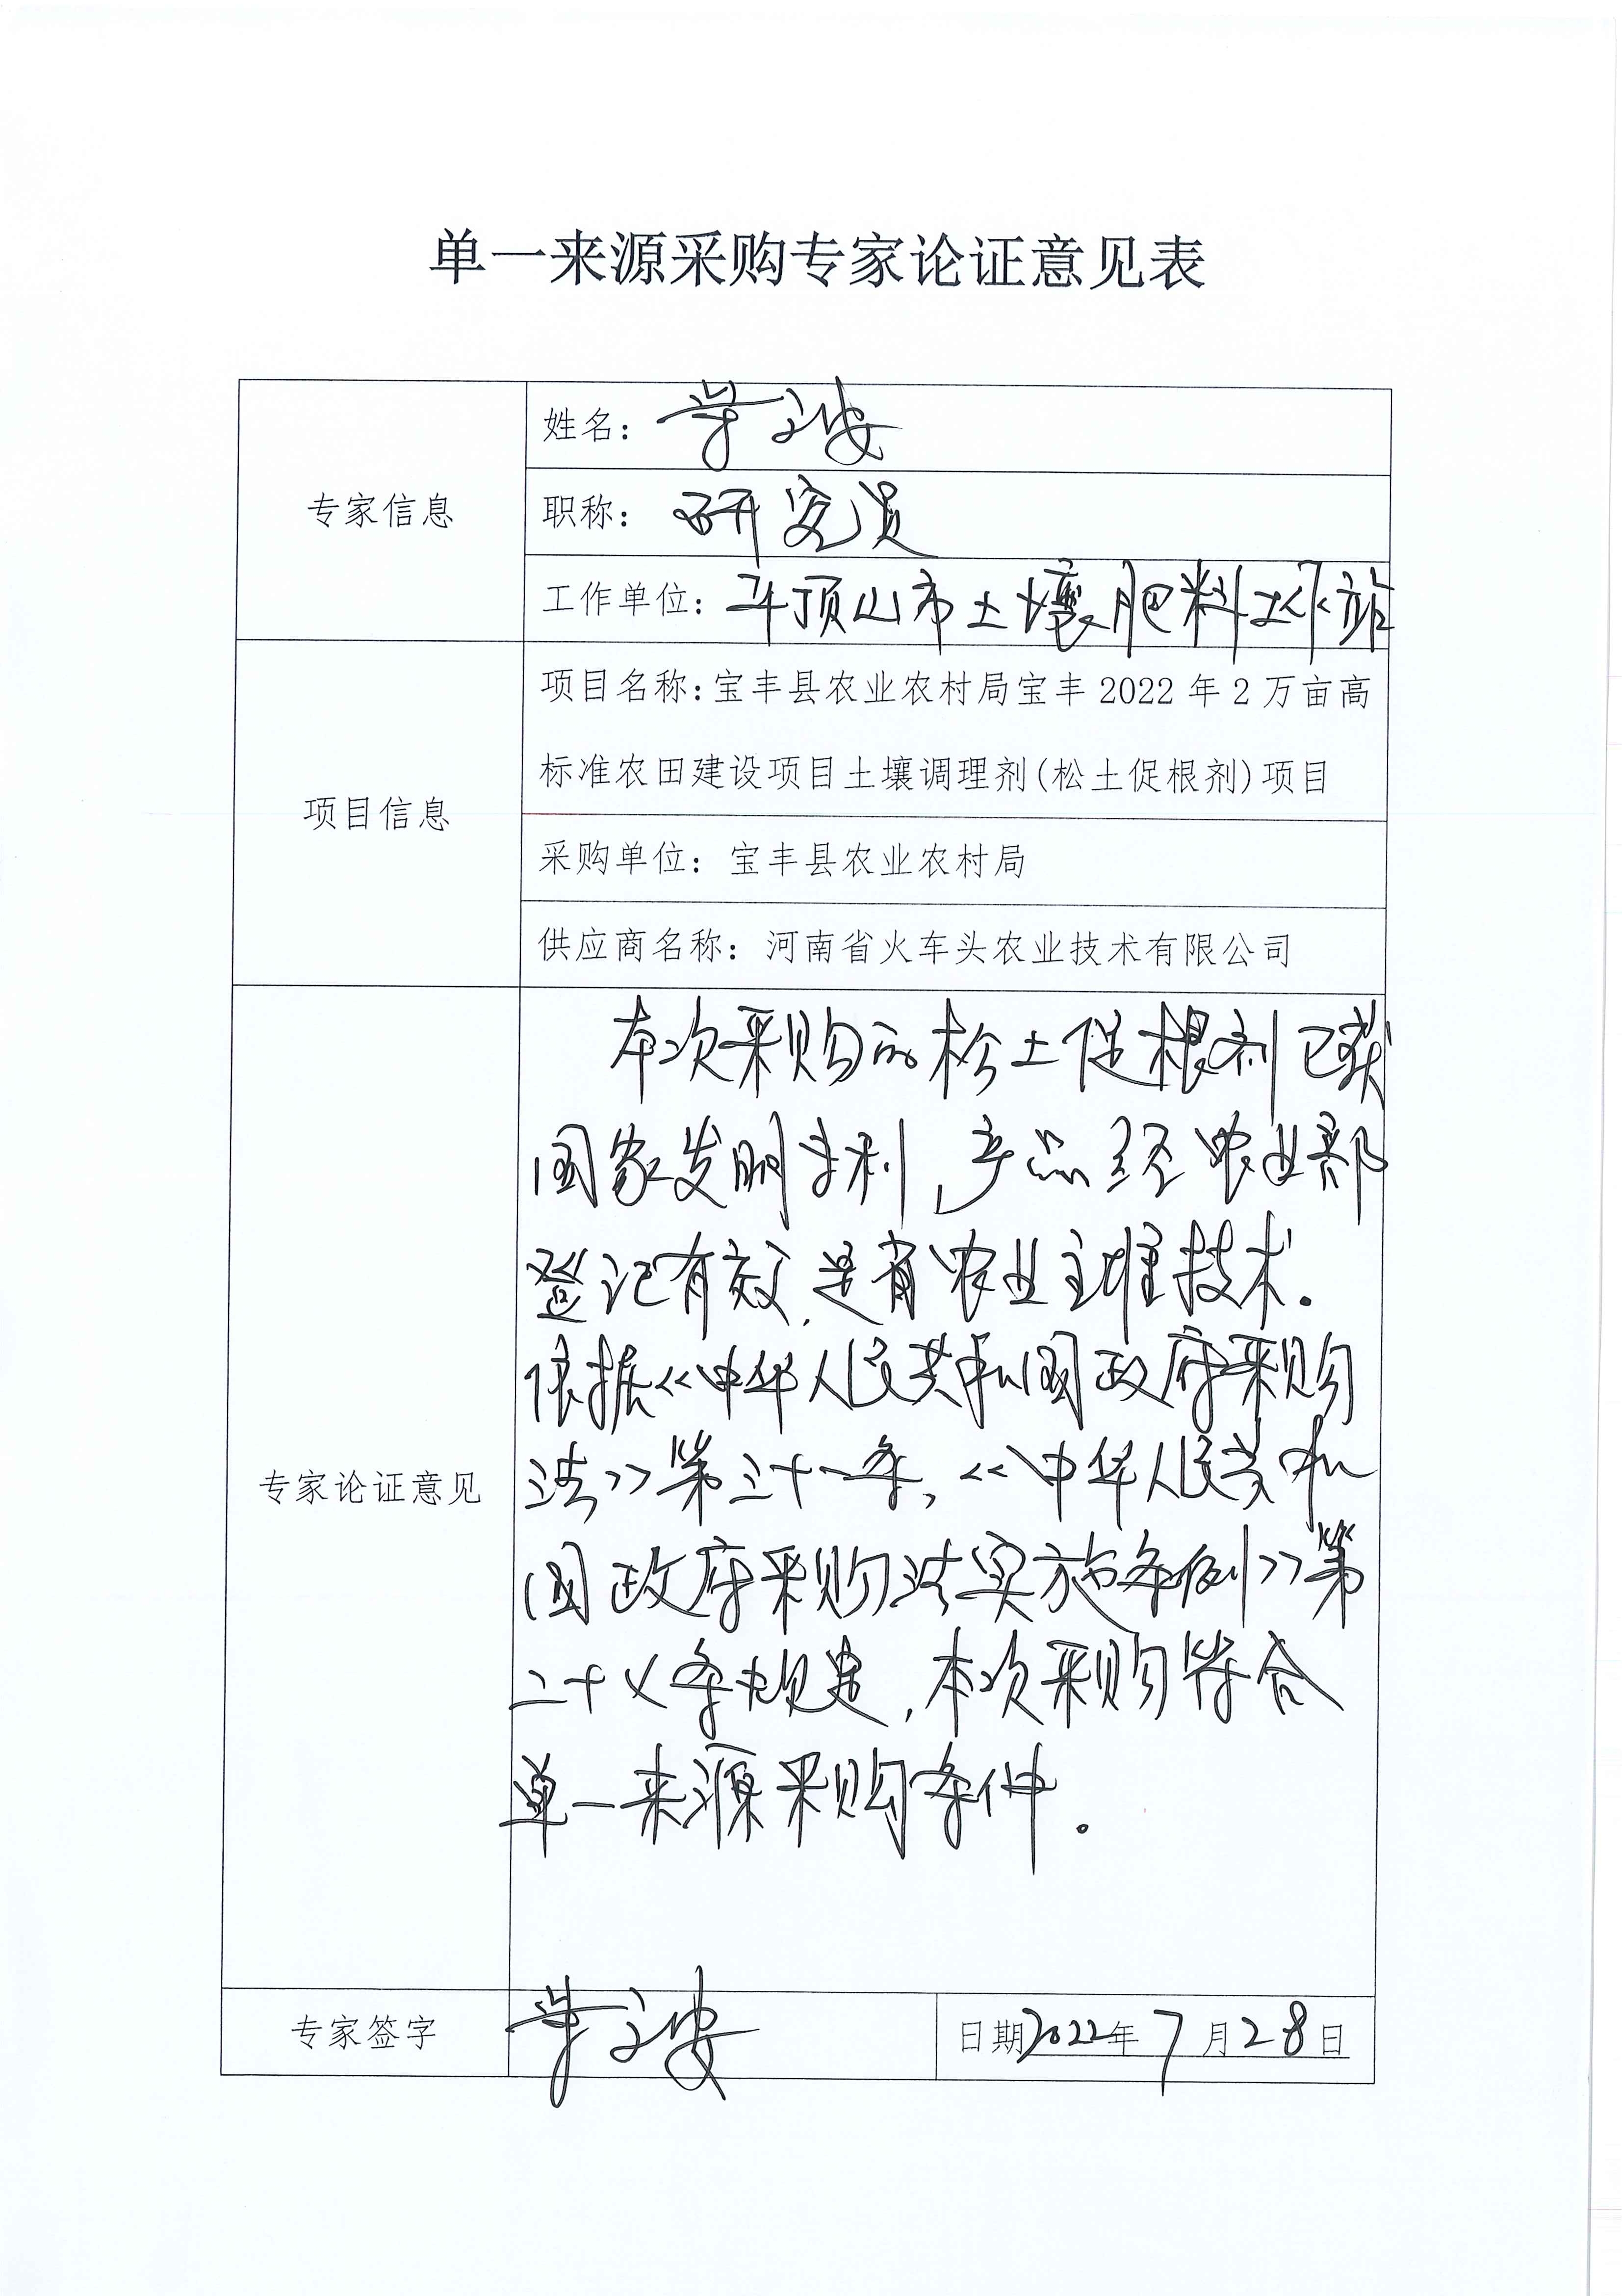 单一来源采购专家论证意见表
专家信息
姓名：
职称：研究员
工作单位：平顶山市土壤肥料工作站
项目信息
项目名称：宝丰县农业农村局宝丰2022年2万亩高
标准农田建设项目土壤调理剂(松土促根剂)项目
采购单位：宝丰县农业农村局
供应商名称：河南省火车头农业技术有限公司
专家论证意见
本次采购的松土促根剂已获
国家发明专利，产品经农业部
登记有效，是省农业主推技术.
依据《中华人民共和国政府采购
法》第三十一条，《中华人民共和
国政府采购法实施条例》第
二十七条规定，本次采购符合
单一来源采购条件。
专家签字
日期2022年7月28日